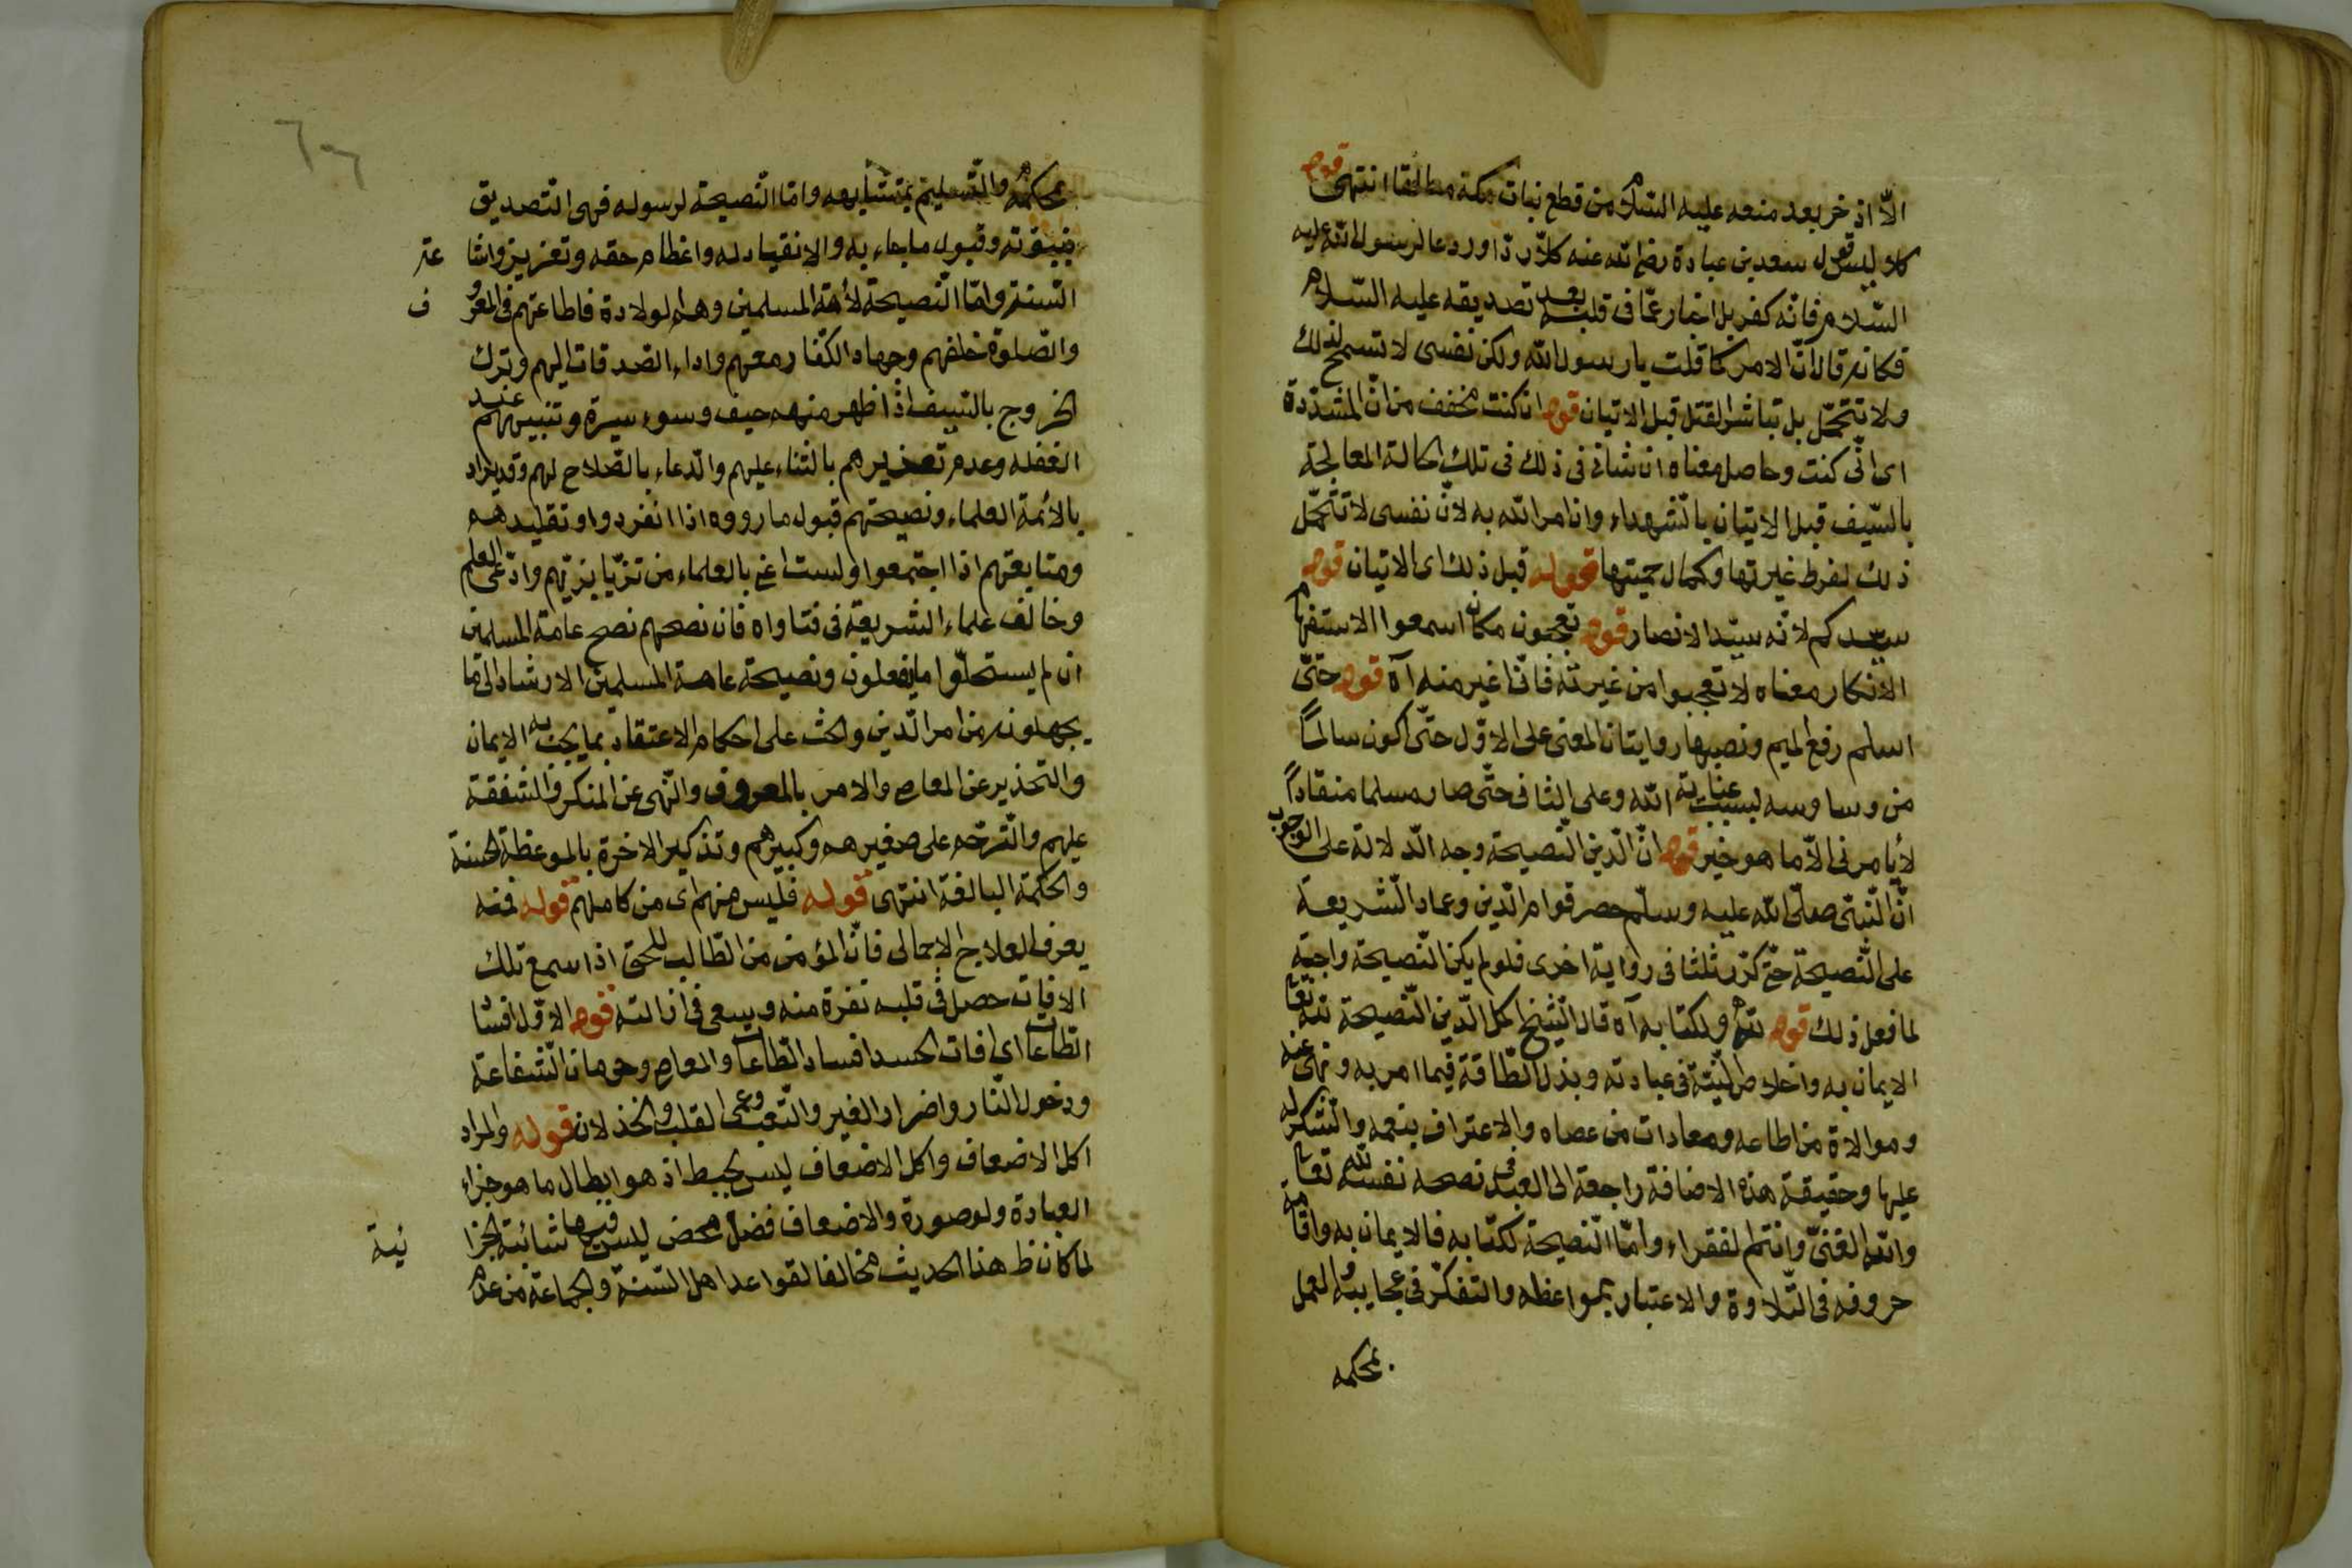 الاّ اذخر بعد منعه عليه السّلام من قطع نبات مكة مطلقا انتهى قوله
كلا ليس قول سعد بن عبادة رضي الله عنه كلا ردّا وردعا لرسول الله عليه
السّلام فانّه كفر بل اخبار عمّا فى قلبه بعد تصديقه عليه السّلام
فكانه قال انّ الامر كما قلت يا رسول الله ولكن نفسى لا تسمح لذلك
ولا تتحمّل بل تباشر القتل قبل الاتيان قوله ان كنت مخفف من انّ المشدّدة
اى انّى كنت وحاصل معناه ان شانى فى ذلك فى تلك الحالة المعالجة
بالسّيف قبل الاتيان بالشّهداء وان امر الله به لانّ نفسى لا تتحمّل
ذلك لفرط غيرتها وكمال حميتها قوله قبل ذلك اى الاتيان قوله
سيّدكم لانّه سيّد الانصار قوله تعجبون مكان اسمعوا الاستفهام
الانكار معناه لا تعجبوا من غيرته فانّا اغير منه آه قوله حتّى
اسلم رفع الميم ونصبها روايتان المعنى على الاوّل حتّى اكون سالمًا
من وساوسه بسبب عناية الله وعلى الثانى حتّى صار مسلما منقادًا
لا يأمرنى الاّ ما هو خير قوله انّ الدّين النّصيحة وجه الدّلالة على الوجوب
انّ النّبىّ صلّى الله عليه وسلّم حصر قوام الدّين وعماد الشّريعة
على النّصيحة حتّى كرّر ثلثا فى رواية اخرى فلو لم يكن النّصيحة واجبة
لما فعل ذلك قوله لله ولكتابه آه قال الشّيخ اكمل الدّين النّصيحة لله تعا
الايمان به واخلاص النّيّة فى عبادته وبذل الطّاقة فيما امر به ونهى عنه
وموالاة من اطاعه ومعادات من عصاه والاعتراف بنعمه والشّكر له
عليها وحقيقة هذه الاضافة راجعة الى العبد فى نصحه نفسه لله تعا
والله الغنىّ وانتم الفقراء وامّا النّصيحة لكتابه فالايمان به واقامة
حروفه فى التّلاوة والاعتبار بمواعظه والتفكّر فى عجايبه والعمل
بمحكمه
بمحكمه والتّسليم بمتشابهه وامّا النّصيحة لرسوله فهى التّصديق
بنبوّته وقبول ما جاء به والانقياد له واعظام حقه وتعزيز واشا
عتر
السّنة وامّا النّصيحة لأئمّة المسلمين وهم الولادة فاطاعتهم فى المعرو
ف
والصّلوة خلفهم وجهاد الكفّار معهم واداء الصّدقات اليهم وترك
الخروج بالسّيف اذا ظهر منهم حيف وسوء سيرة وتنبيههم عند
الغفلة وعدم تصغيرهم بالثّناء عليهم والدّعاء بالصّلاح لهم وقد يراد
بالأئمة العلماء ونصيحتهم قبول ما رووه اذا انفردوا وتقليدهم
ومتابعتهم اذا اجتمعوا ولست اعنى بالعلماء من تزيّا بزيّهم وادّعى العلم
وخالف علماء الشريعة فى فتاواه فان نصحهم نصح عامة المسلمين
ان لم يستحلّوا ما يفعلون ونصيحة عامة المسلمين الارشاد الى ما
يجهلونه من امر الدّين والحث على احكام الاعتقاد بما يجب به الايمان
والتحذير عن المعاصى والامر بالمعروف والنّهى عن المنكر والشفقة
عليهم والترحّم على صغيرهم وكبيرهم وتذكير الاخرة بالموعظة الحسنة
والحكمة البالغة انتهى قوله فليس منهم اى من كاملهم قوله فمنه
يعرف العلاج الاجمالى فانّ المؤمن من الطّالب للحق اذا سمع تلك
الافات حصل فى قلبه نفرة منه ويسعى فى ازالته قوله الاوّل افسا
الطّاعات اى افات الحسد افساد الطّاعات والمعاصى وحرمان الشّفاعة
ودخول النّار واضرار الغير والتّعب وعمى القلب والخذلان قوله والمراد
اكل الاضعاف واكل الاضعاف ليس بحبط اذ هو ابطال ما هو جزاء
العبادة ولو صورة والاضعاف فضل محض ليس فيها شائبة الجزا
ئية
لما كان ظ هذا الحديث مخالفا لقواعد اهل السّنة والجماعة من عدم